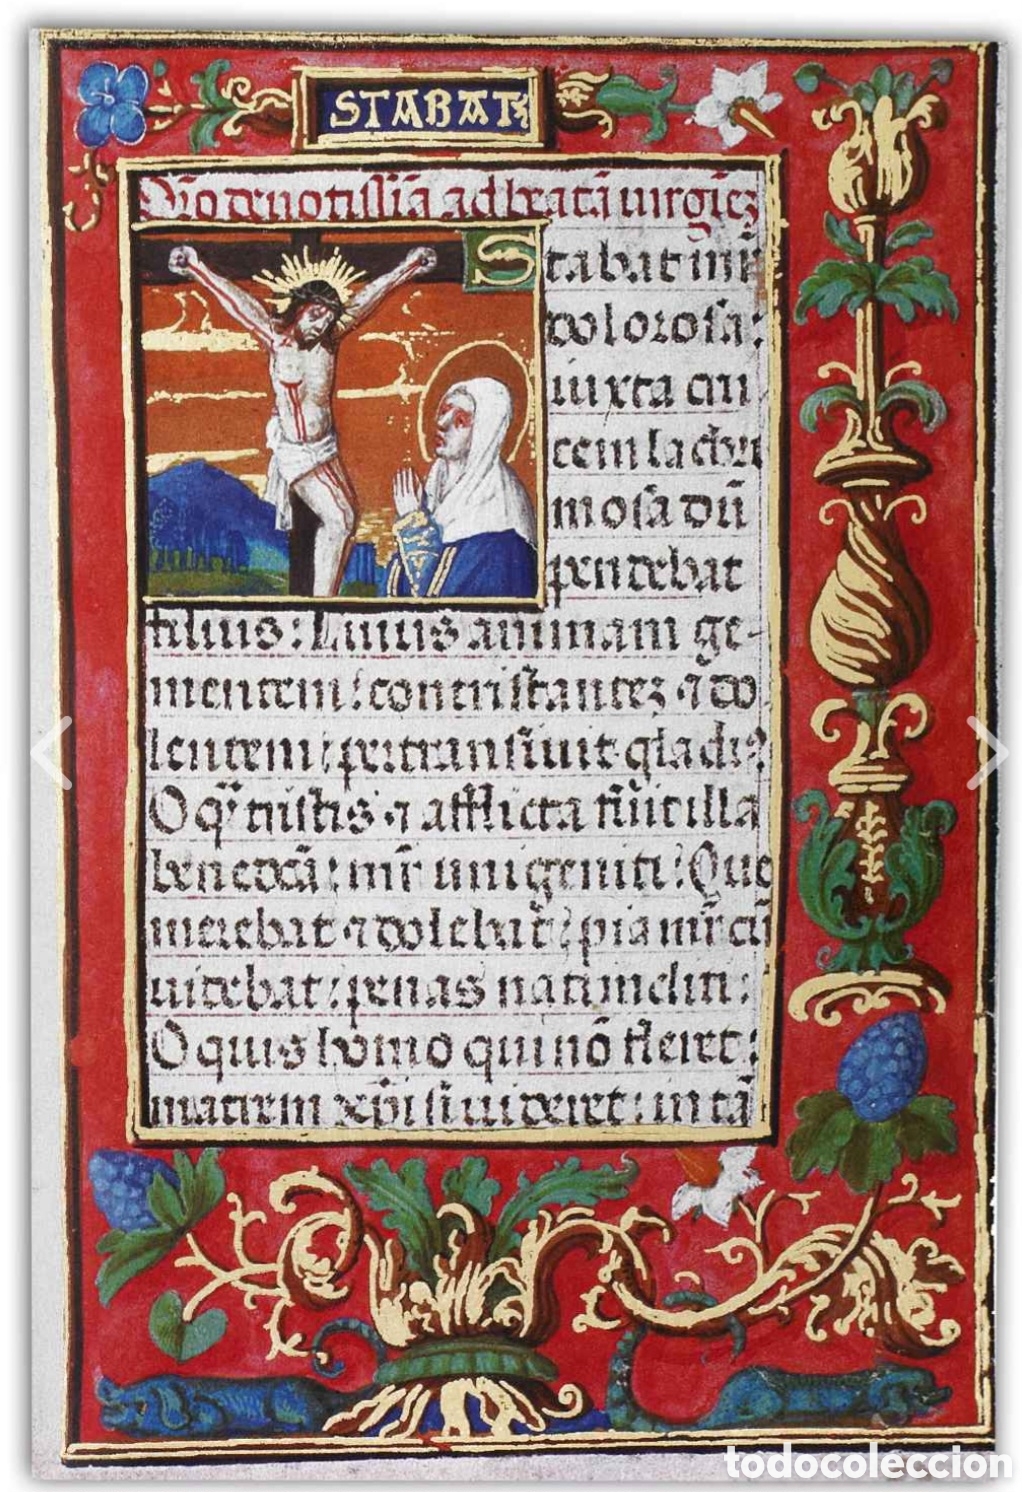 STABAT
Oro deuotissīa ad beatā uirgīez
Stabat mr̄
dolorosa:
iuxta cru
cem lachri
mosa dū
pendebat
filius: Cuius animam ge-
mentem: contristantez ⁊ do
lentem: pertransiuit gladi⁹
O qͣ tristis ⁊ afflicta fuit illa
benedcā: mr̄ unigeniti: Que
merebat ⁊ dolebat: pia mr̄ cū
uidebat: penas nati incliti:
O quis homo qui nō fleret:
matrem xp̄i si uideret: in tā
todocoleccion